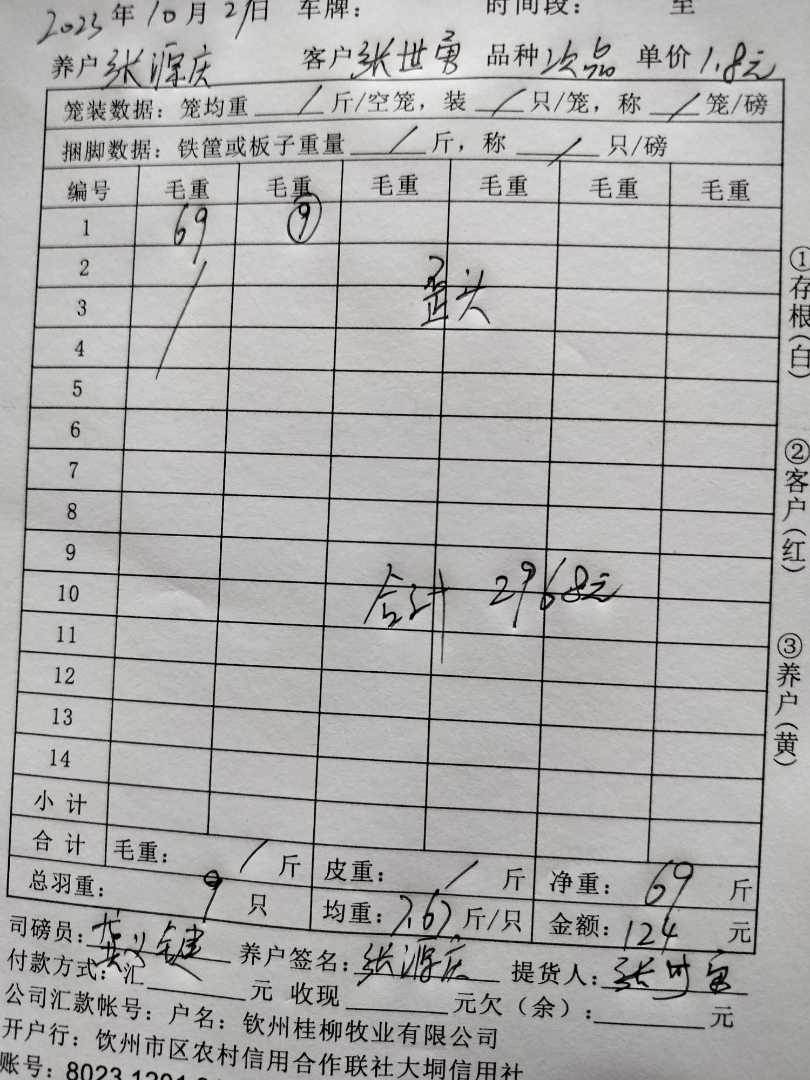 2023年10月29日 车牌： 时间段： 至
养户 张源庆 客户 张世勇 品种 次品 单价 1.8元
笼装数据：笼均重 / 斤/空笼，装 / 只/笼，称 / 笼/磅
捆脚数据：铁筐或板子重量 / 斤，称 / 只/磅
编号 毛重 毛重 毛重 毛重 毛重 毛重
1 69 ⑨
2 歪头
3
4
5
6
7
8
9
10 合计 2968元
11
12
13
14
小计
合计 毛重： / 斤 皮重： / 斤 净重： 69 斤
总羽重： 9 只 均重： 7.67 斤/只 金额： 124 元
司磅员： 养户签名：张源庆 提货人：张世勇
付款方式：汇 元 收现 元欠（余）： 元
公司汇款帐号：户名：钦州桂柳牧业有限公司
开户行：钦州市区农村信用合作联社大垌信用社
账号：8023 1201
①存根(白)
②客户(红)
③养户(黄)